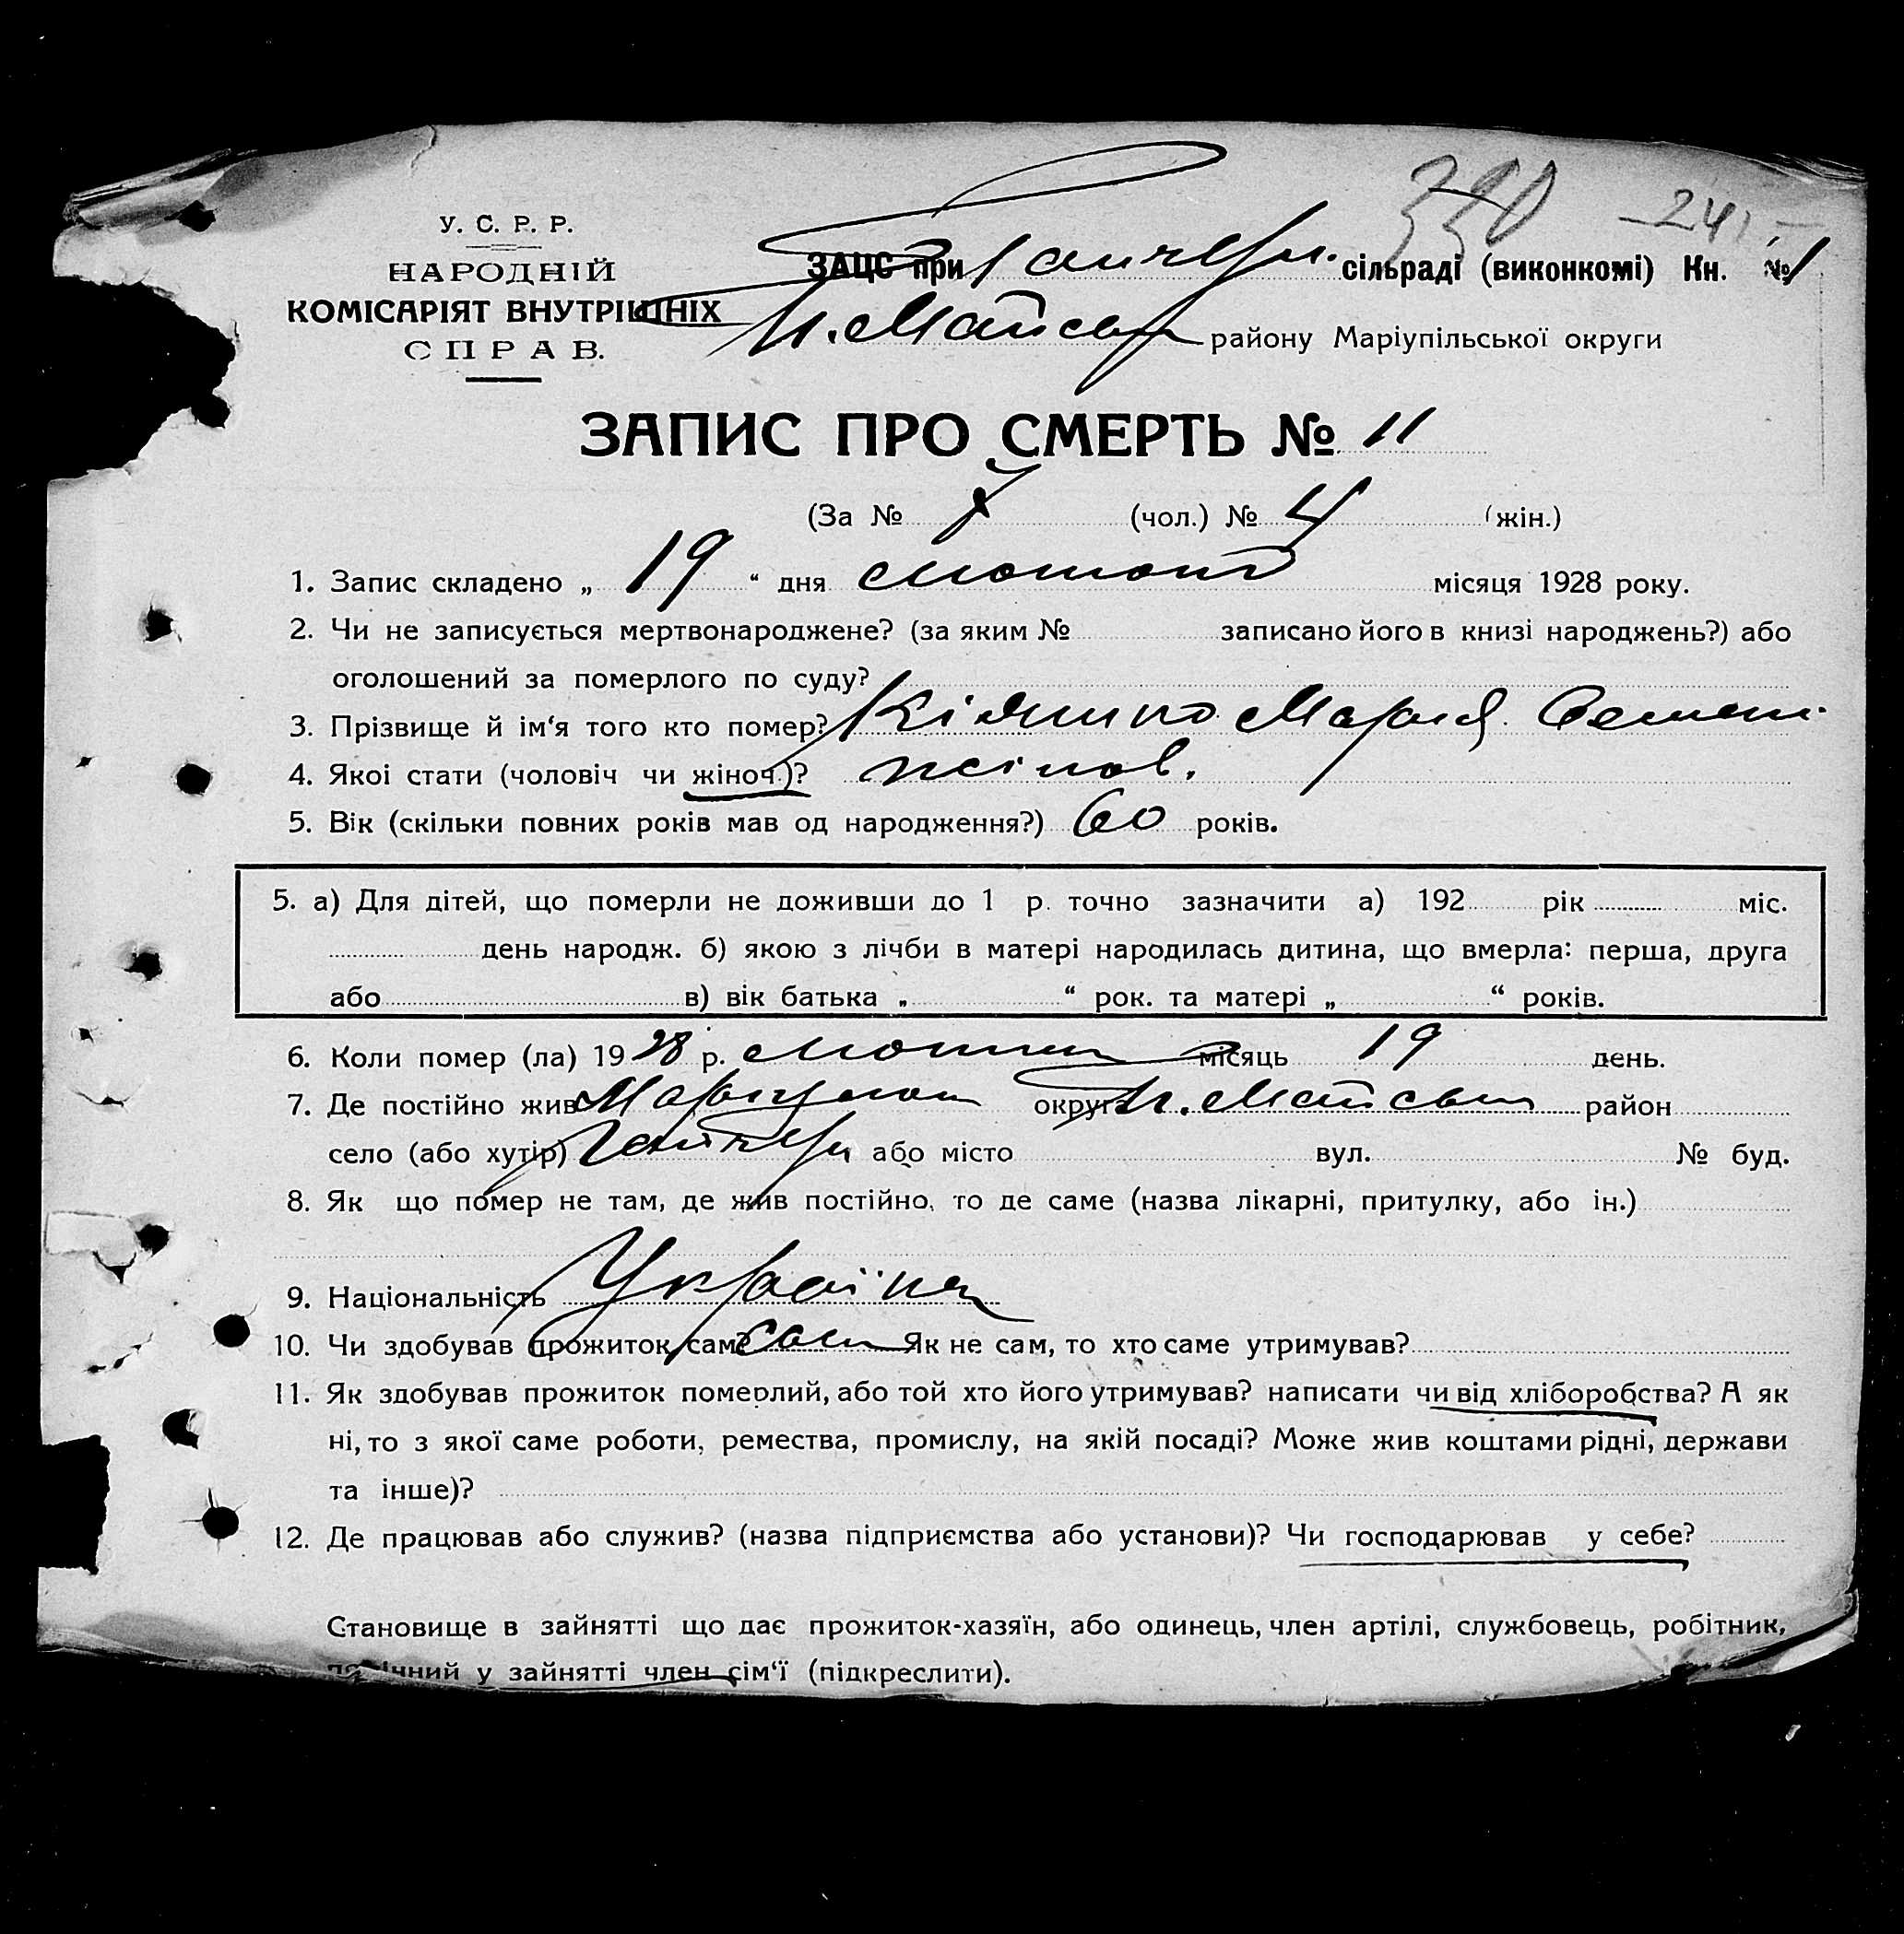 390 -241-
У. С. Р. Р.
НАРОДНІЙ
КОМІСАРІЯТ ВНУТРІШНІХ
СПРАВ.
ЗАЦС при сільраді (виконкомі) Кн. № 1
районy Маріупільської округи
ЗАПИС ПРО СМЕРТЬ № 11
(За № 7 (чол.) № 4 (жін.)
1. Запис складено „ 19 “ дня лютого місяця 1928 року.
2. Чи не записується мертвонароджене? (за яким № записано його в книзі народжень?) або
оголошений за померлого по суду?
3. Прізвище й ім‘я того кто помер? Кіяшко Мария Семен.
4. Якоі стати (чоловіч чи жіноч.)? жінов.
5. Вік (скільки повних років мав од народження?) 60 років.
5. а) Для дітей, що померли не доживши до 1 р. точно зазначити а) 192 рік міс.
день народж. б) якою з лічби в матері народилась дитина, що вмерла: перша, друга
або в) вік батька „ “ рок. та матері „ “ років.
6. Коли помер (ла) 19 28 р. місяць 19 день.
7. Де постійно жив Маріупол округа район
село (або хутір) або місто вул. № буд.
8. Як що помер не там, де жив постійно, то де саме (назва лікарні, притулку, або ін.)
9. Національність Українка
10. Чи здобував прожиток сам? сам Як не сам, то хто саме утримував?
11. Як здобував прожиток померлий, або той хто його утримував? написати чи від хліборобства? А як
ні, то з якої саме роботи, ремества, промислу, на якій посаді? Може жив коштами рідні, держави
та інше)?
12. Де працював або служив? (назва підприємства або установи)? Чи господарював у себе?
Становище в зайнятті що дає прожиток-хазяїн, або одинець, член артілі, службовець, робітник,
у зайнятті член сім‘ї (підкреслити).